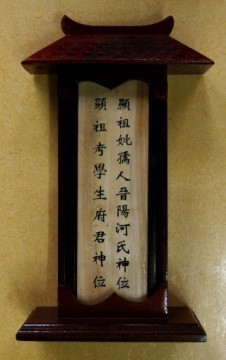 顯祖妣孺人晉陽河氏神位
顯祖考學生府君神位